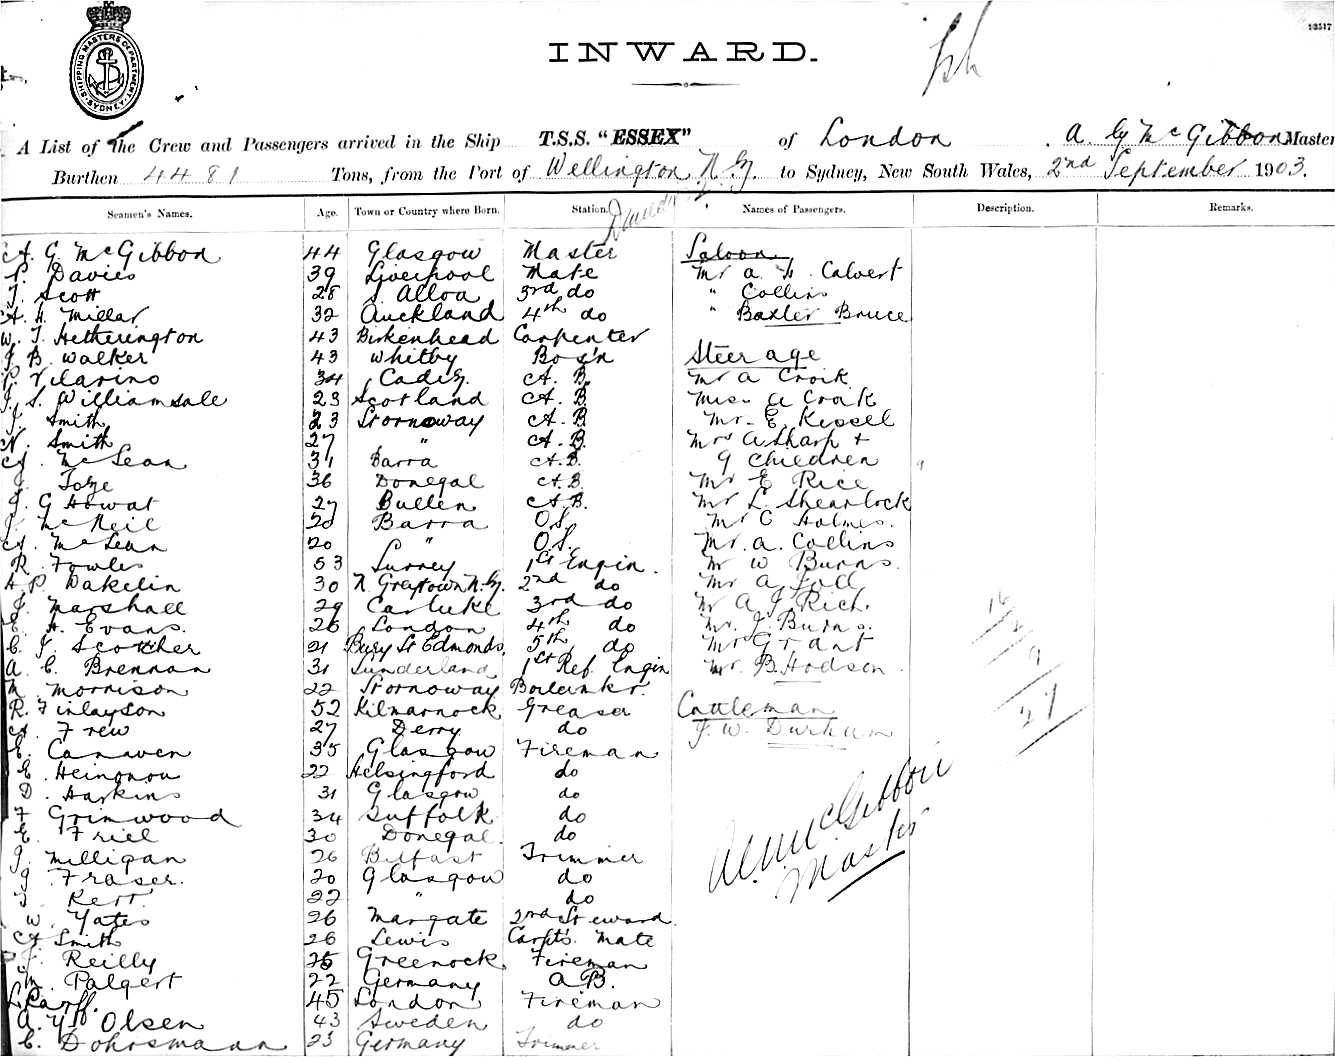 SHIPPING MASTERS DEPARTMENT
SYDNEY
INWARD.
13517
A List of the Crew and Passengers arrived in the Ship T.S.S. "ESSEX" of London A. G. McGibbon Master
Burthen 4481 Tons, from the Port of Wellington N.Z. to Sydney, New South Wales, 2nd September 1903.
Seamen's Names. Age. Town or Country where Born. Station. Names of Passengers. Description. Remarks.
A. G. McGibbon 44 Glasgow Master Saloon
Davies 39 Liverpool Mate Mr A. H. Calvert
Scott 28 S. Alloa 3rd do " Collins
A. H. Millar 32 Auckland 4th do " Baxter Bruce
W. T. Hetherington 43 Birkenhead Carpenter
J. B. Walker 43 Whitby Bos'n Steerage
P. Vilarino 34 Cadiz. A.B. Mr A Croik
J. S. Williamsale 23 Scotland A.B. Miss A Croik
J. Smith 23 Stornoway A.B. Mr. E. Kissel
N. Smith 27 " A.B. Mrs A Sharp +
A. McLean 31 Barra A.B. 9 Children
J. Toye 36 Donegal A.B. Mr E Rice
J. G Howat 27 Bullen A.B. Mr L. Shearlock
J. McNeil 20 Barra O.S. Mr C Holmes.
A. McLean 20 " O.S. Mr. A. Collins
R. Fowles 53 Surrey 1st Engin. Mr W Burns.
A. P. Wakelin 30 N. Greytown N.Z. 2nd do Mr A Joll
J. Marshall 29 Carluke 3rd do Mr A J Rich.
E. H. Evans. 26 London 4th do Mr. J. Burns.
C. J. Scotcher 21 Bury St Edmonds, 5th do Mr Grant
A. C. Brennan 31 Sunderland 1st Ref. Engin Mr. B. Hodson.
M. Morrison 22 Stornoway Boilermkr.
R. Finlayson 52 Kilmarnock Greaser Cattleman
A. Frew 27 Derry do F. W. Durham
E. Canaven 35 Glasgow Fireman
E. Heinonou 22 Helsingford do
D. Harkins 31 Glasgow do
F Grimwood 34 Suffolk do
E. Friel 30 Donegal. do
J. Milligan 26 Belfast Trimmer
J. Fraser. 20 Glasgow do
Kerr. 22 " do
W. Yates 26 Margate 2nd Steward.
A Smith 26 Lewis Carpt's. Mate
J. Reilly 25 Greenock Fireman
M. Palgert 22 Germany A.B.
45 London Fireman
A. Olsen 43 Sweden do
C. Dohrsmann 23 Germany Trimmer
16
2
9
27
McGibbon
Master